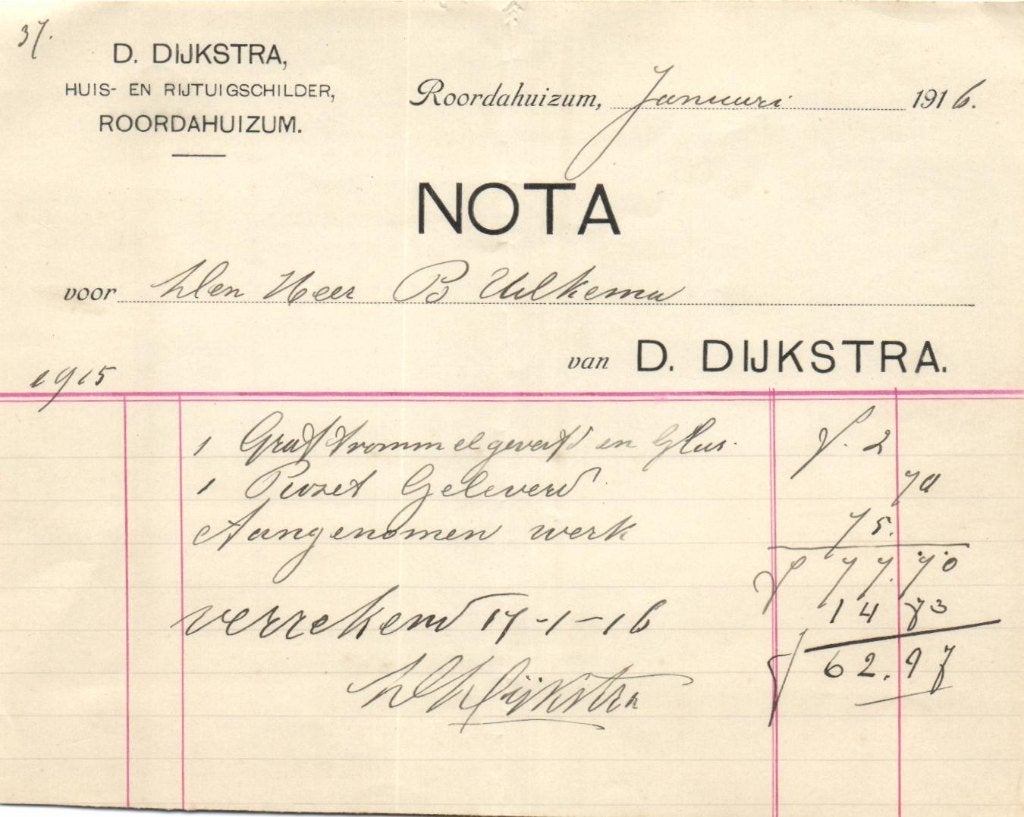 37.
D. DIJKSTRA,
HUIS- EN RIJTUIGSCHILDER,
ROORDAHUIZUM.
Roordahuizum, Januari 1916.
NOTA
voor Den Heer B Uilkema
van D. DIJKSTRA.
1915
1 Graftrommel geverfd en Glas. f. 2
1 Rozet Geleverd. 70
Aangenomen werk 75.
f 77.70
verrekend 17-1-16 14 73
f 62.97
D Dijkstra